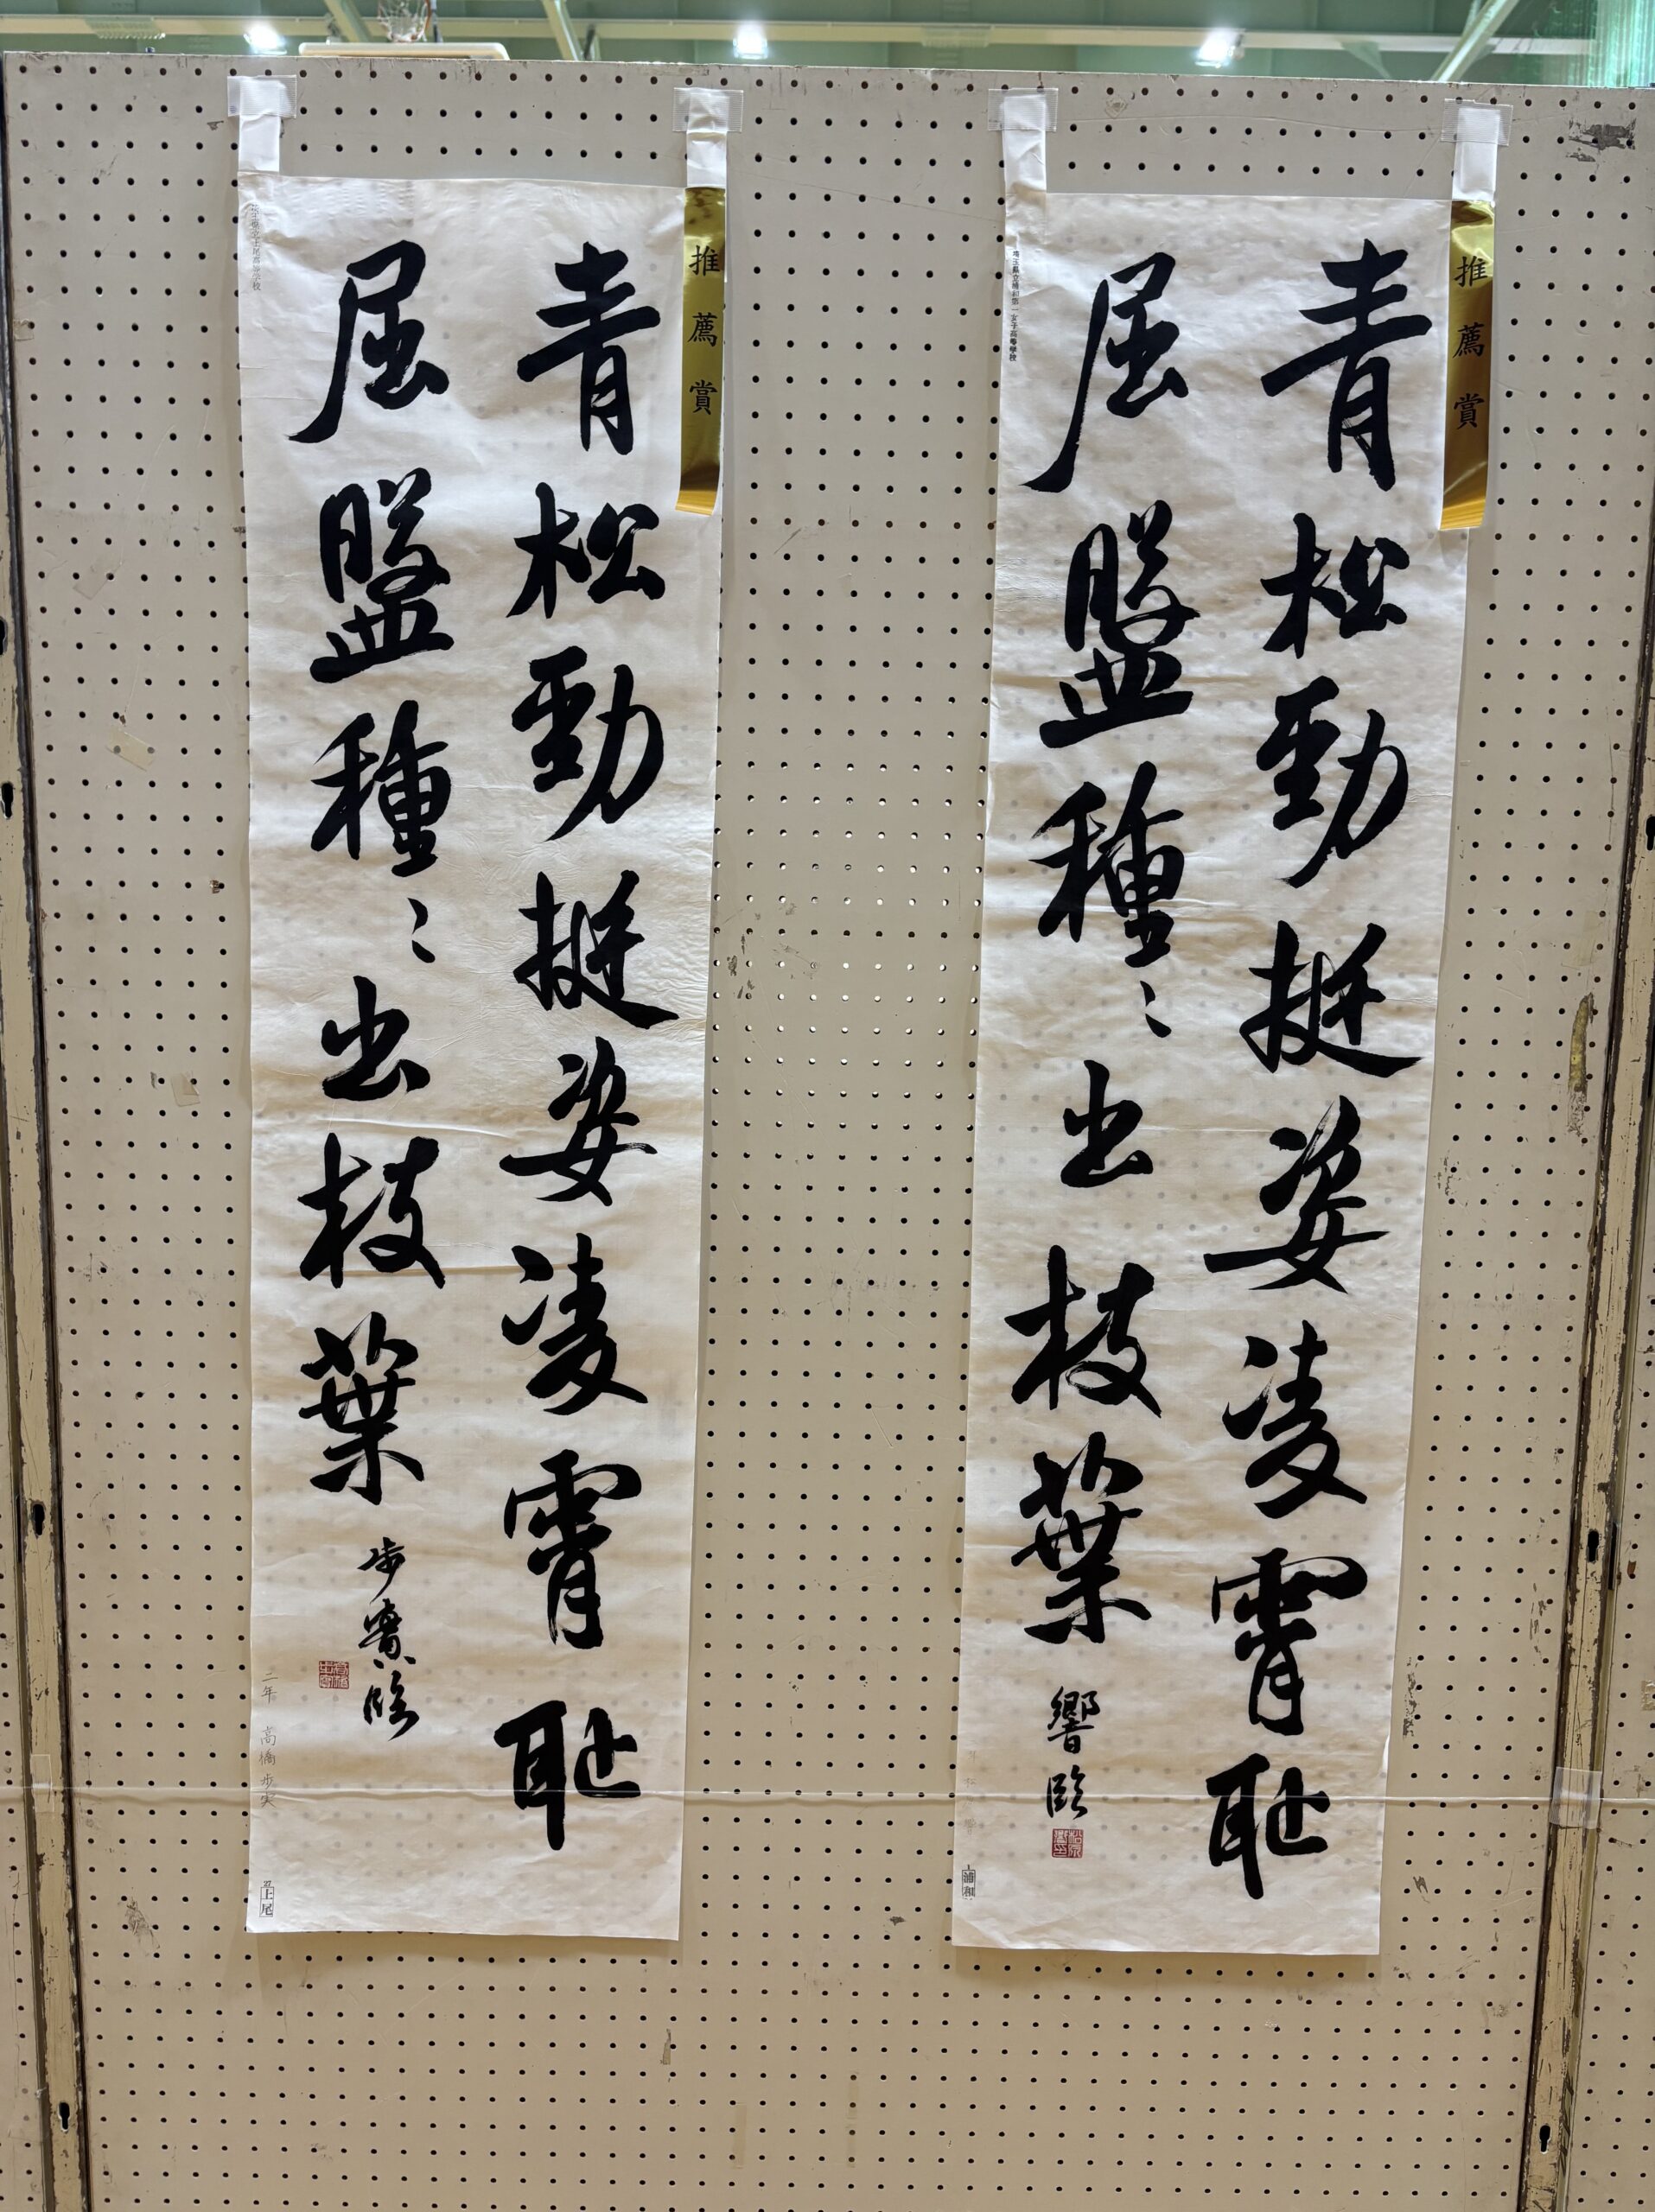 推薦賞
青松勁挺姿凌霄耻
屈盤種〻出枝葉
響臨
埼玉県立浦和第一女子高等学校
浦和
推薦賞
青松勁挺姿凌霄耻
屈盤種〻出枝葉
歩実臨
二年 高橋歩実
上尾